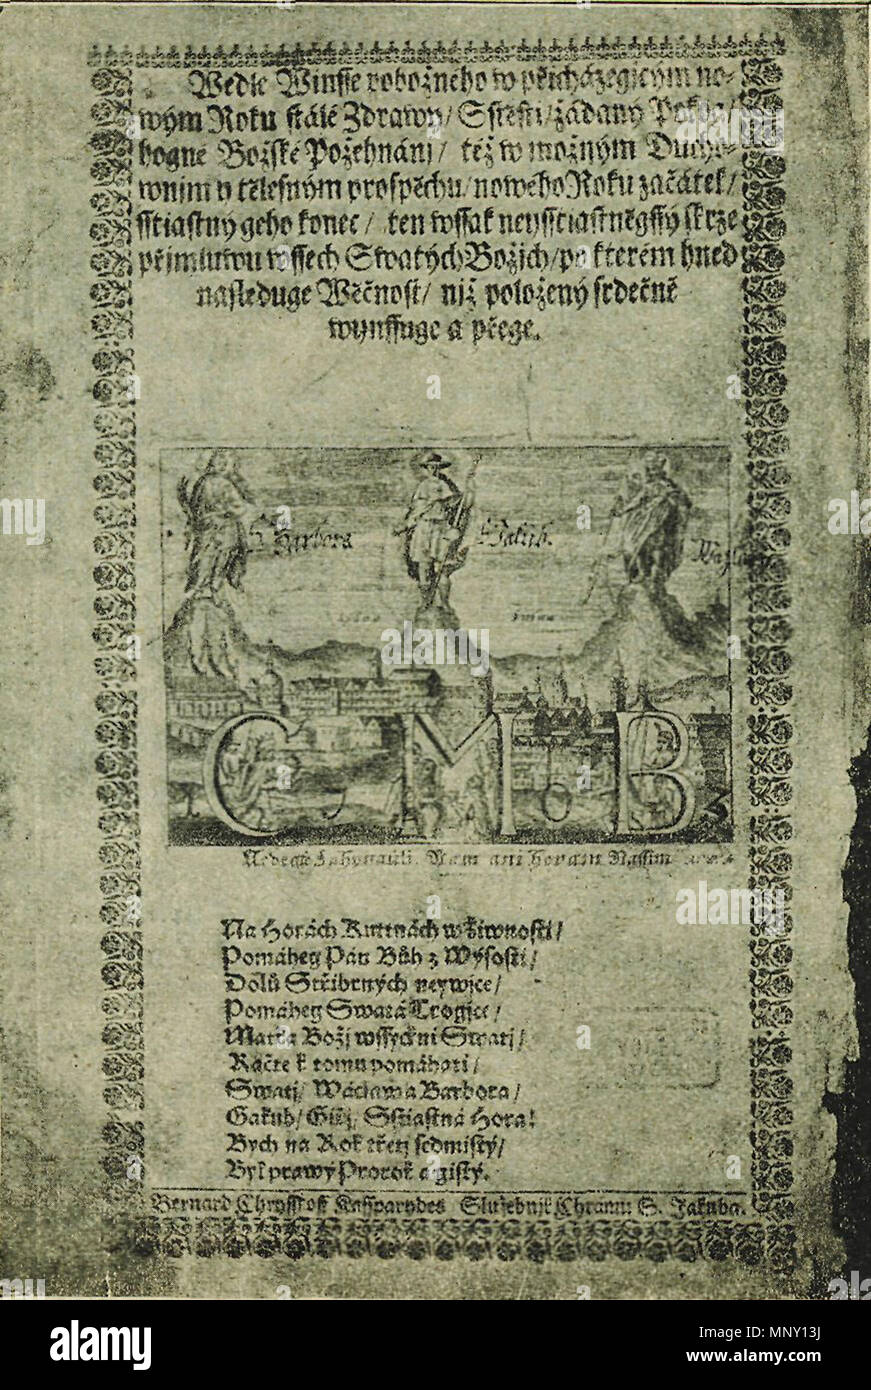 Wedle Winsse pobožného w přicházegicým no-
wým Roku stálé Zdrawy / Sstěsti / žádaný Pokog /
hogné Božské Požehnánj / též w možným Ducho-
wnim y tělesným prospěchu / nowého Roku začátek /
sstiastný geho konec / ten wssak neysstiastněgssý skrze
přjmluwu wssech Swatých Božich / po kterém hned
nasleduge Wěčnost / njž položený srdečně
wynssuge a přege.
S. Barbora
S. Jakub.
C M B
Na Horách Kuttnách w žiwnosti /
Pomáheg Pán Bůh z Wýsosti /
Dolů Střibrných neywjce /
Pomáheg Swatá Trogice /
Matka Božj wssyckni Swatj /
Račte k tomu pomáhati /
Swatj / Wáclaw a Barbora /
Gakub / Giřj / Sstiastná Hora!
Bych na Rok třetj sedmistý /
Byl prawý Prorok a gistý.
Bernard Chrysstoff Kassparydes Služebnjk Chramu S. Jakuba.
a alamy stock photo
alamy
Image ID: MNY13J
www.alamy.com